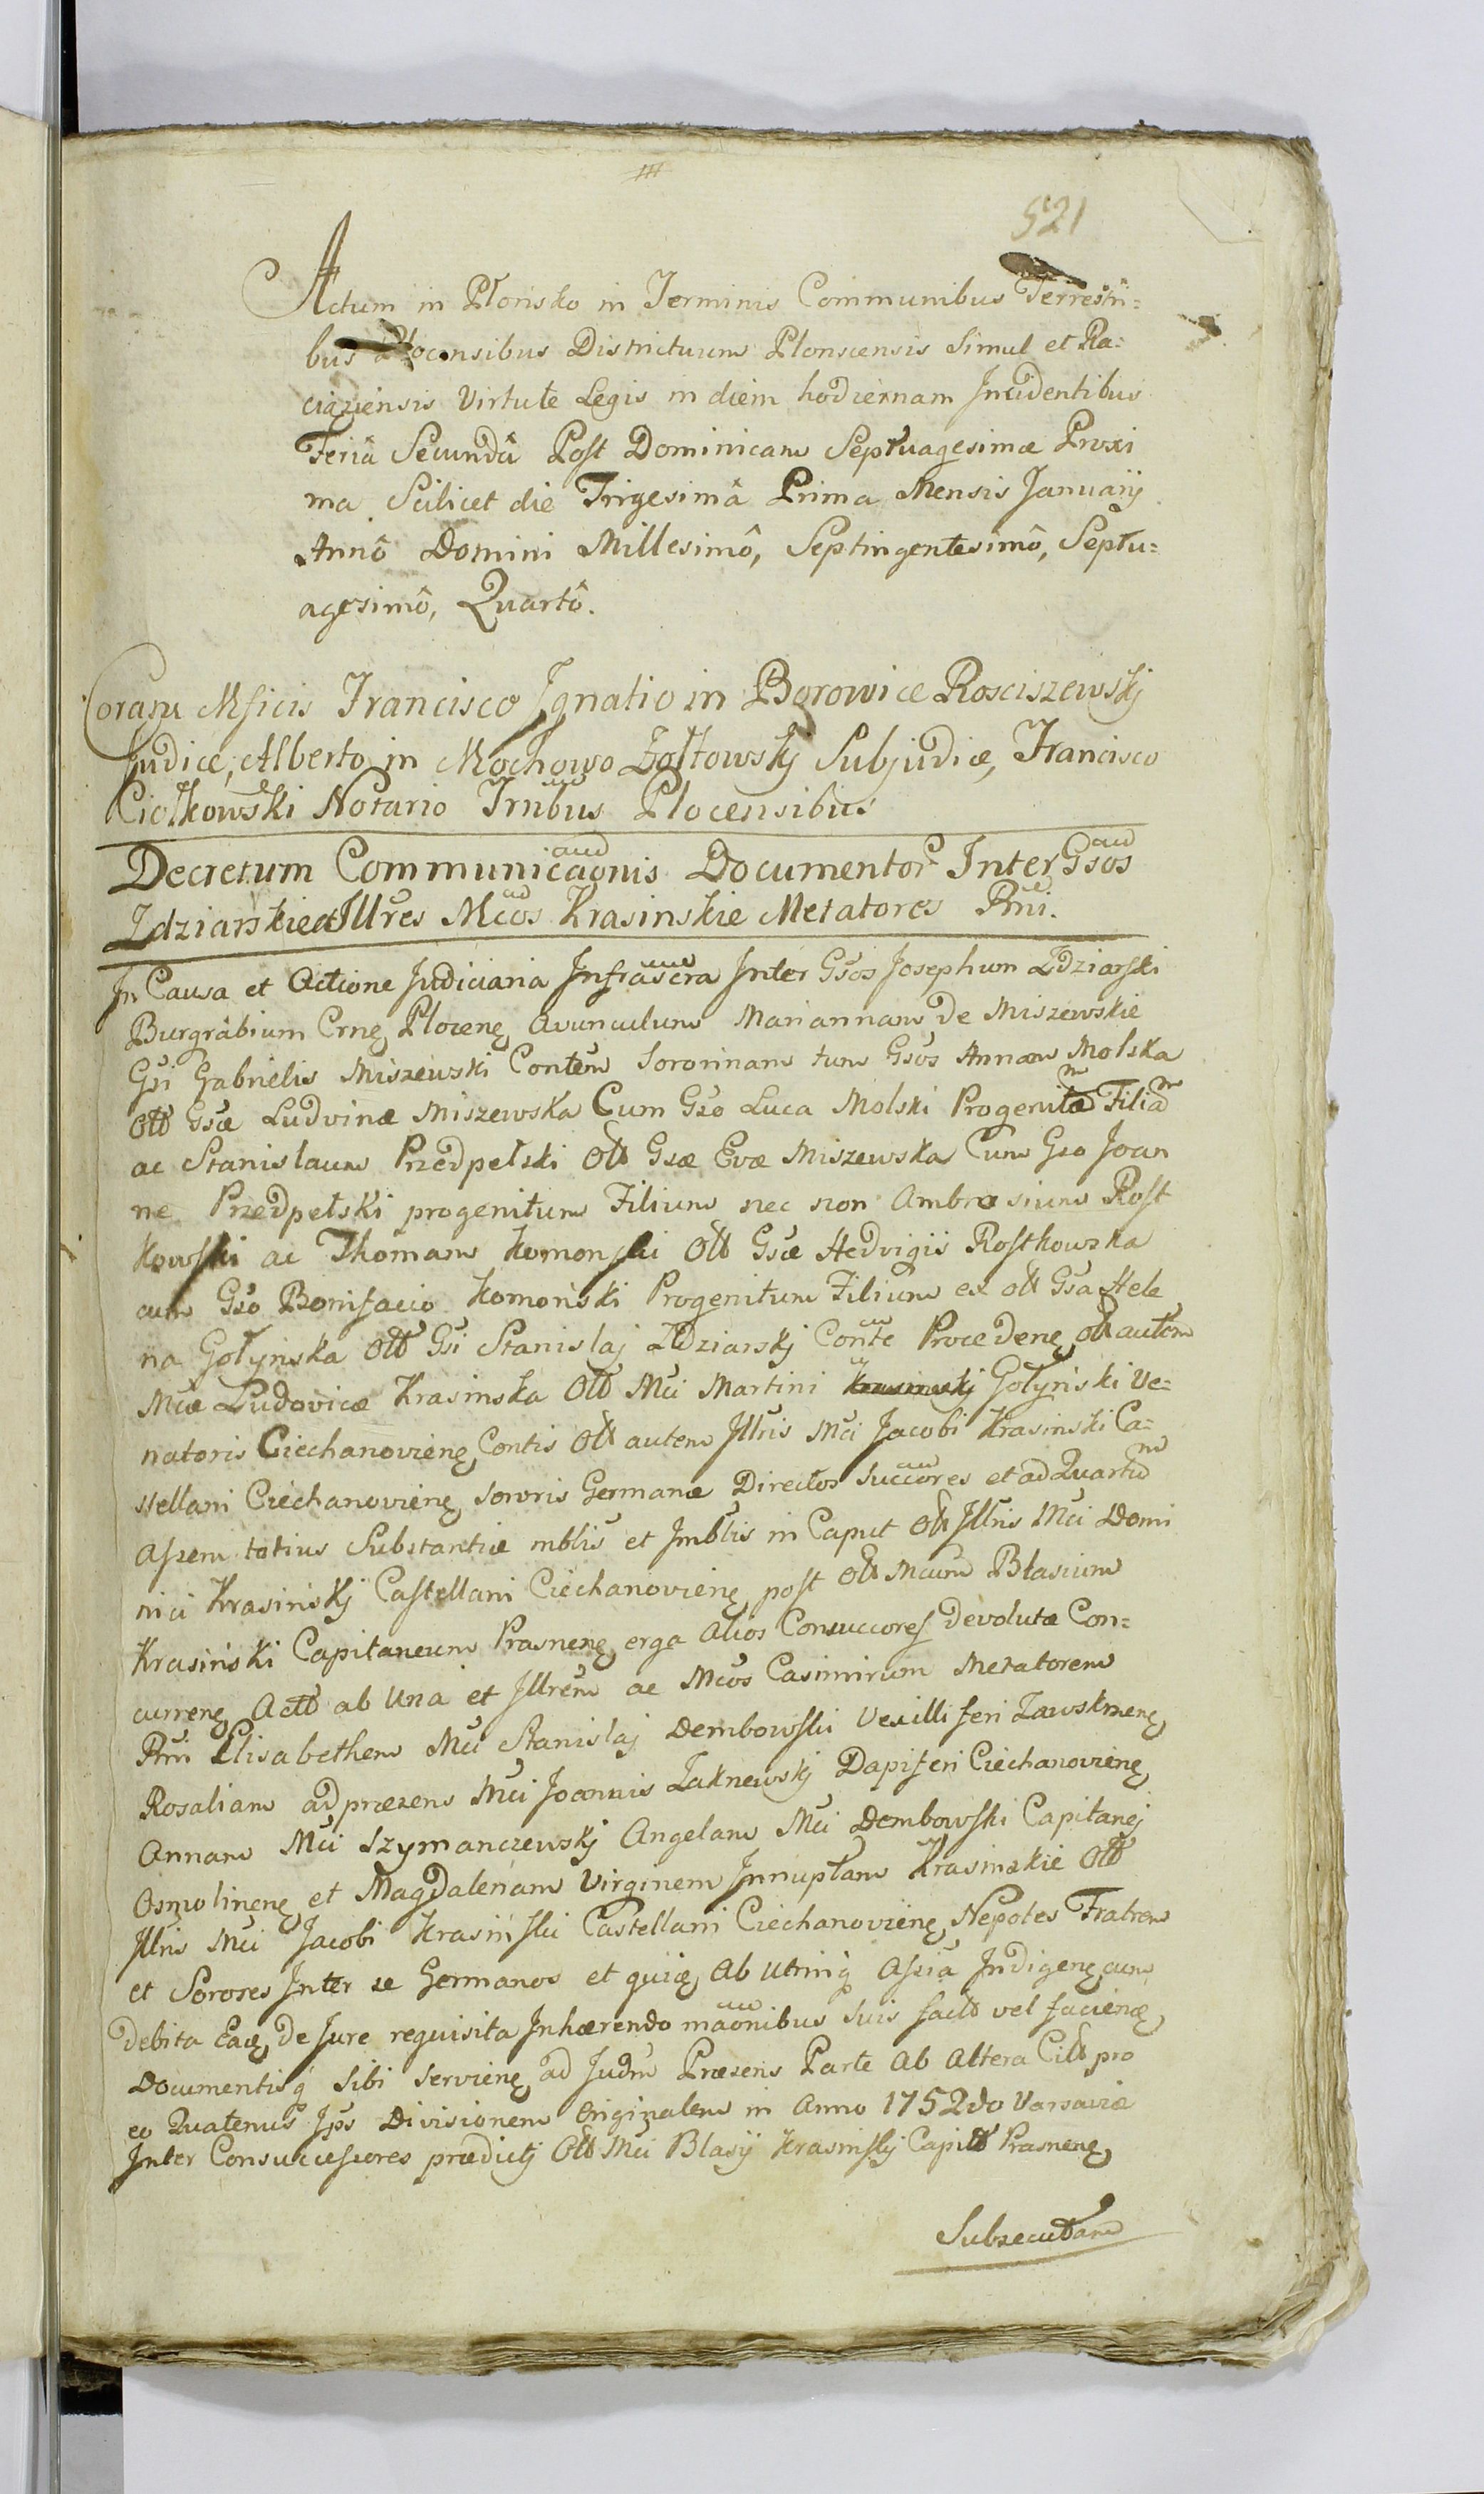 521
Actum in Płonsko in Terminis Communibus Terrestri=
bus Plocensibus Districtuum Plonscensis Simul et Ra=
ciąziensis Virtute Legis in diem hodiernam Incidentibus
Feriâ Secundâ Post Dominicam Septuagesimæ Proxi
ma Scilicet die Trigesimâ Prima Mensis Januarij
Annô Domini Millesimô, Septingentesimô, Septu=
agesimô, Quartô.
Coram Mficis Francisco Ignatio in Borowice Rosciszewskj
Judice, Alberto in Mochowo Zołtowskj Subjudice, Francisco
Ciołkowski Notario Trribus Plocensibus
Decretum Communicaonis Documentor Inter Gsos
Zdziarskie et Illres Mcos Krasinskie Metatores Rni.
In Causa et Actione Judiciaria Infrascra Inter Gsos Josephum Zdziarski
Burgrabium Crnę Plocenę Avunculum Mariannam de Miszewskie
Gsi Gabrielis Miszewski Contem Sororinam tum Gsos Annam Molska
Olb Gsæ Ludvinæ Miszewska Cum Gso Luca Molski Progenitam Filiam
ac Stanislaum Przedpełski Olb Gsæ Evæ Miszewska Cum Gso Joan
ne Przedpełski progenitum Filium nec non Ambrosium Rost
kowski ac Thomam Komonski Olb Gsæ Hedvigis Rostkowska
cum Gso Bonifacio Komoński Progenitum Filium ex olb Gsa Hele
na Gołynska Olb Gsi Stanislaj Zdziarskj Conte Procedenę olb autem
Mcæ Ludovicæ Krasinska Olb Mci Martini Gołyński Ve=
natoris Ciechanovienę Contis Olb autem Illris Mci Jacobi Krasinski Ca=
stellani Ciechanovienę Sororis Germanæ Directos Succores et ad Quartum
Assem totius Substantiæ mblis et Imblis in Caput Olb Illris Mci Domi
nici Krasińskj Castellani Ciechanovienę post Olb Mcum Blasium
Krasiński Capitaneum Prasnenę erga Alios Consuccores devolutæ Con=
currenę Actb ab Una et Illrem ac Mcos Casimirum Metatorem
Rni Elisabetham Mci Stanislaj Dembowski Vexilliferi Zawskrzenę
Rosaliam ad præsens Mci Joannis Zakrzewskj Dapiferi Ciechanovienę
Annam Mci Szymanczewskj Angelam Mci Dembowski Capitanej
Osmolinenę et Magdalenam Virginem Innuptam Krasinskie Olb
Illris Mci Jacobi Krasinski Castellani Ciechanovienę Nepotes Fratrem
et Sorores Inter se Germanos et quię Ab Utrinq Assia Indigenę cum
debita Eaę de Jure requisita Inhærendo maonibus Suis factb vel facienę
Documentisq Sibi Servienę ad Judm Præsens Parte Ab Altera Citb pro
eo Quatenus Ips Divisionem Originalem in Anno 1752do Varsaviæ
Inter Consuccessores prædictj Olb Mci Blasij Krasinskj Capitb Prasnenę
Subsecutam